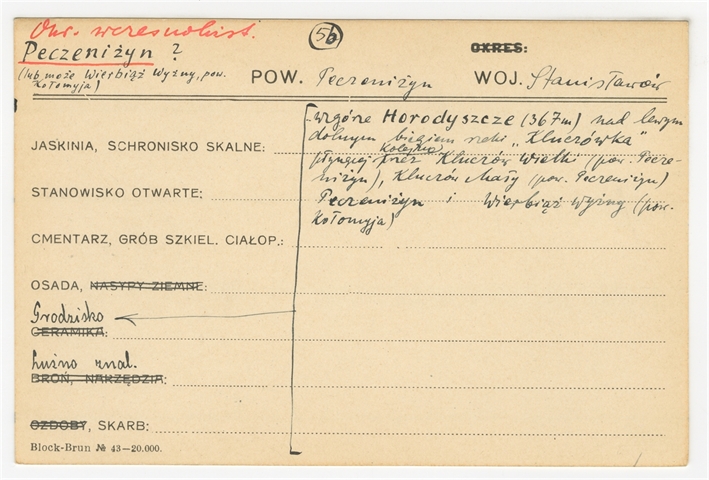 Okr. wczesnohist.
Peczeniżyn ?
(lub może Wierbiąż Wyżny, pow. Kołomyja)
5b
OKRES:
POW. Peczeniżyn WOJ. Stanisławów
wzgórze Horodyszcze (367m) nad lewym
dolnym biegiem rzeki „Kluczówka"
JASKINIA, SCHRONISKO SKALNE:
płynącej kolejno przez Kluczów Wielki (pow. Pecze-
niżyn), Kluczów Mały (pow. Peczeniżyn)
STANOWISKO OTWARTE:
Peczeniżyn i Wierbiąż Wyżny (pow.
Kołomyja)
CMENTARZ, GRÓB SZKIEL. CIAŁOP.:
OSADA, NASYPY ZIEMNE:
Grodzisko
CERAMIKA:
Luźno znal.
BROŃ, NARZĘDZIA:
OZDOBY, SKARB:
Block-Brun № 43—20.000.